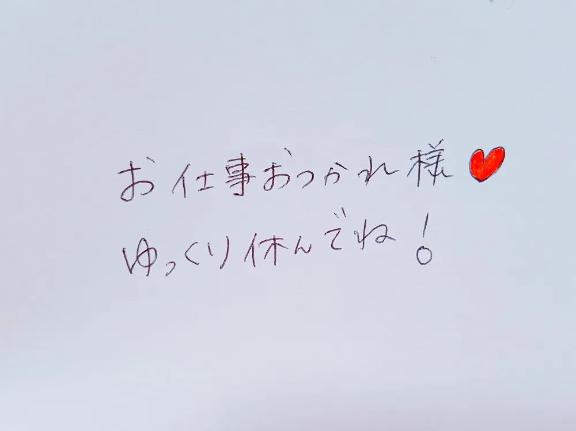 お仕事おつかれ様❤
ゆっくり休んでね!